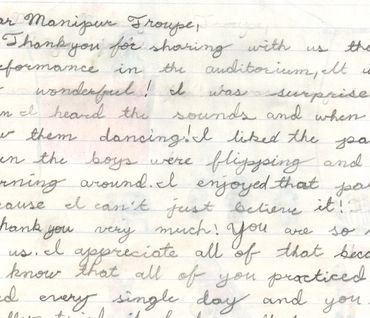 ar Manipur Troupe,
Thank you for sharing with us the
erformance in the auditorium, It w
wonderful! I was surprise
n I heard the sounds and when
w them dancing! I liked the pa
en the boys were flipping and
urning around. I enjoyed that pa
cause I can't just believe it!
hank you very much! You are so
us. I appreciate all of that beca
know that all of you practiced
ed every single day and you